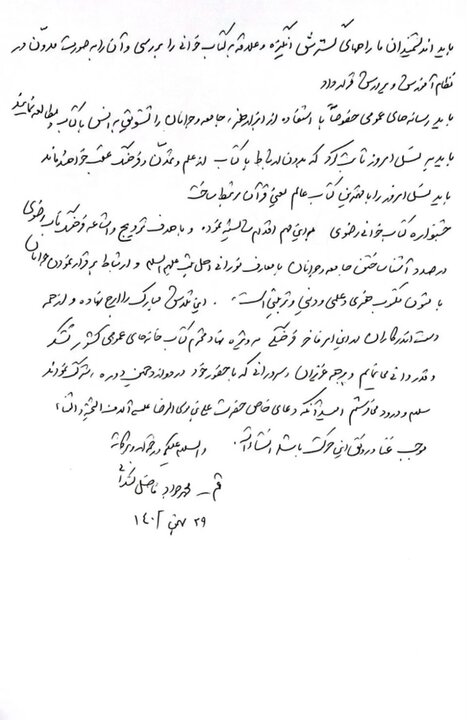 باید اندیشمندان ما راههای گسترش انگیزه و علاقه به کتاب خوانی را بررسی و آن را به صورت مدوّن در
نظام آموزش و پرورش قرار داد
باید رسانه‌های عمومی خصوصاً با استفاده از ابزار هنر، جامعه و جوانان را تشویق به انس با کتاب و مطالعه نمایند
باید به نسل امروز تأکید کرد که بدون ارتباط با کتاب از علم و تمدّن و فرهنگ عقب خواهند ماند
باید نسل امروز را با بهترین کتاب عالم یعنی قرآن مرتبط ساخت
جشنواره کتاب خوانی رضوی به این مهم اقدام شایسته نموده و با هدف ترویج و اشاعه فرهنگ ناب رضوی
درصدد آشنا ساختن جامعه و جوانان با معارف نورانی اهل بیت علیهم السلام و ارتباط برقرار نمودن جوانان
با متون مکتوب هنری و علمی و دینی و تربیتی است. این تلاش مبارک را ارج نهاده و از همه
دست اندرکاران این امر فاخر فرهنگی به ویژه نهاد محترم کتاب خانه‌های عمومی کشور تشکر
و قدردانی می نمایم و به همه عزیزان و سرورانی که با حضور خود در دوازدهمین دوره شرکت نموده‌اند
سلام و درود می فرستم امید آنکه دعای خاص حضرت علی بن موسی الرضا علیه آلاف التحیة و الثناء
موجب غنا و رونق این حرکت باشد انشاءالله.
والسلام علیکم و رحمة الله و برکاته
قم - محمد جواد فاضل لنکرانی
۲۹ بهمن ۱۴۰۲